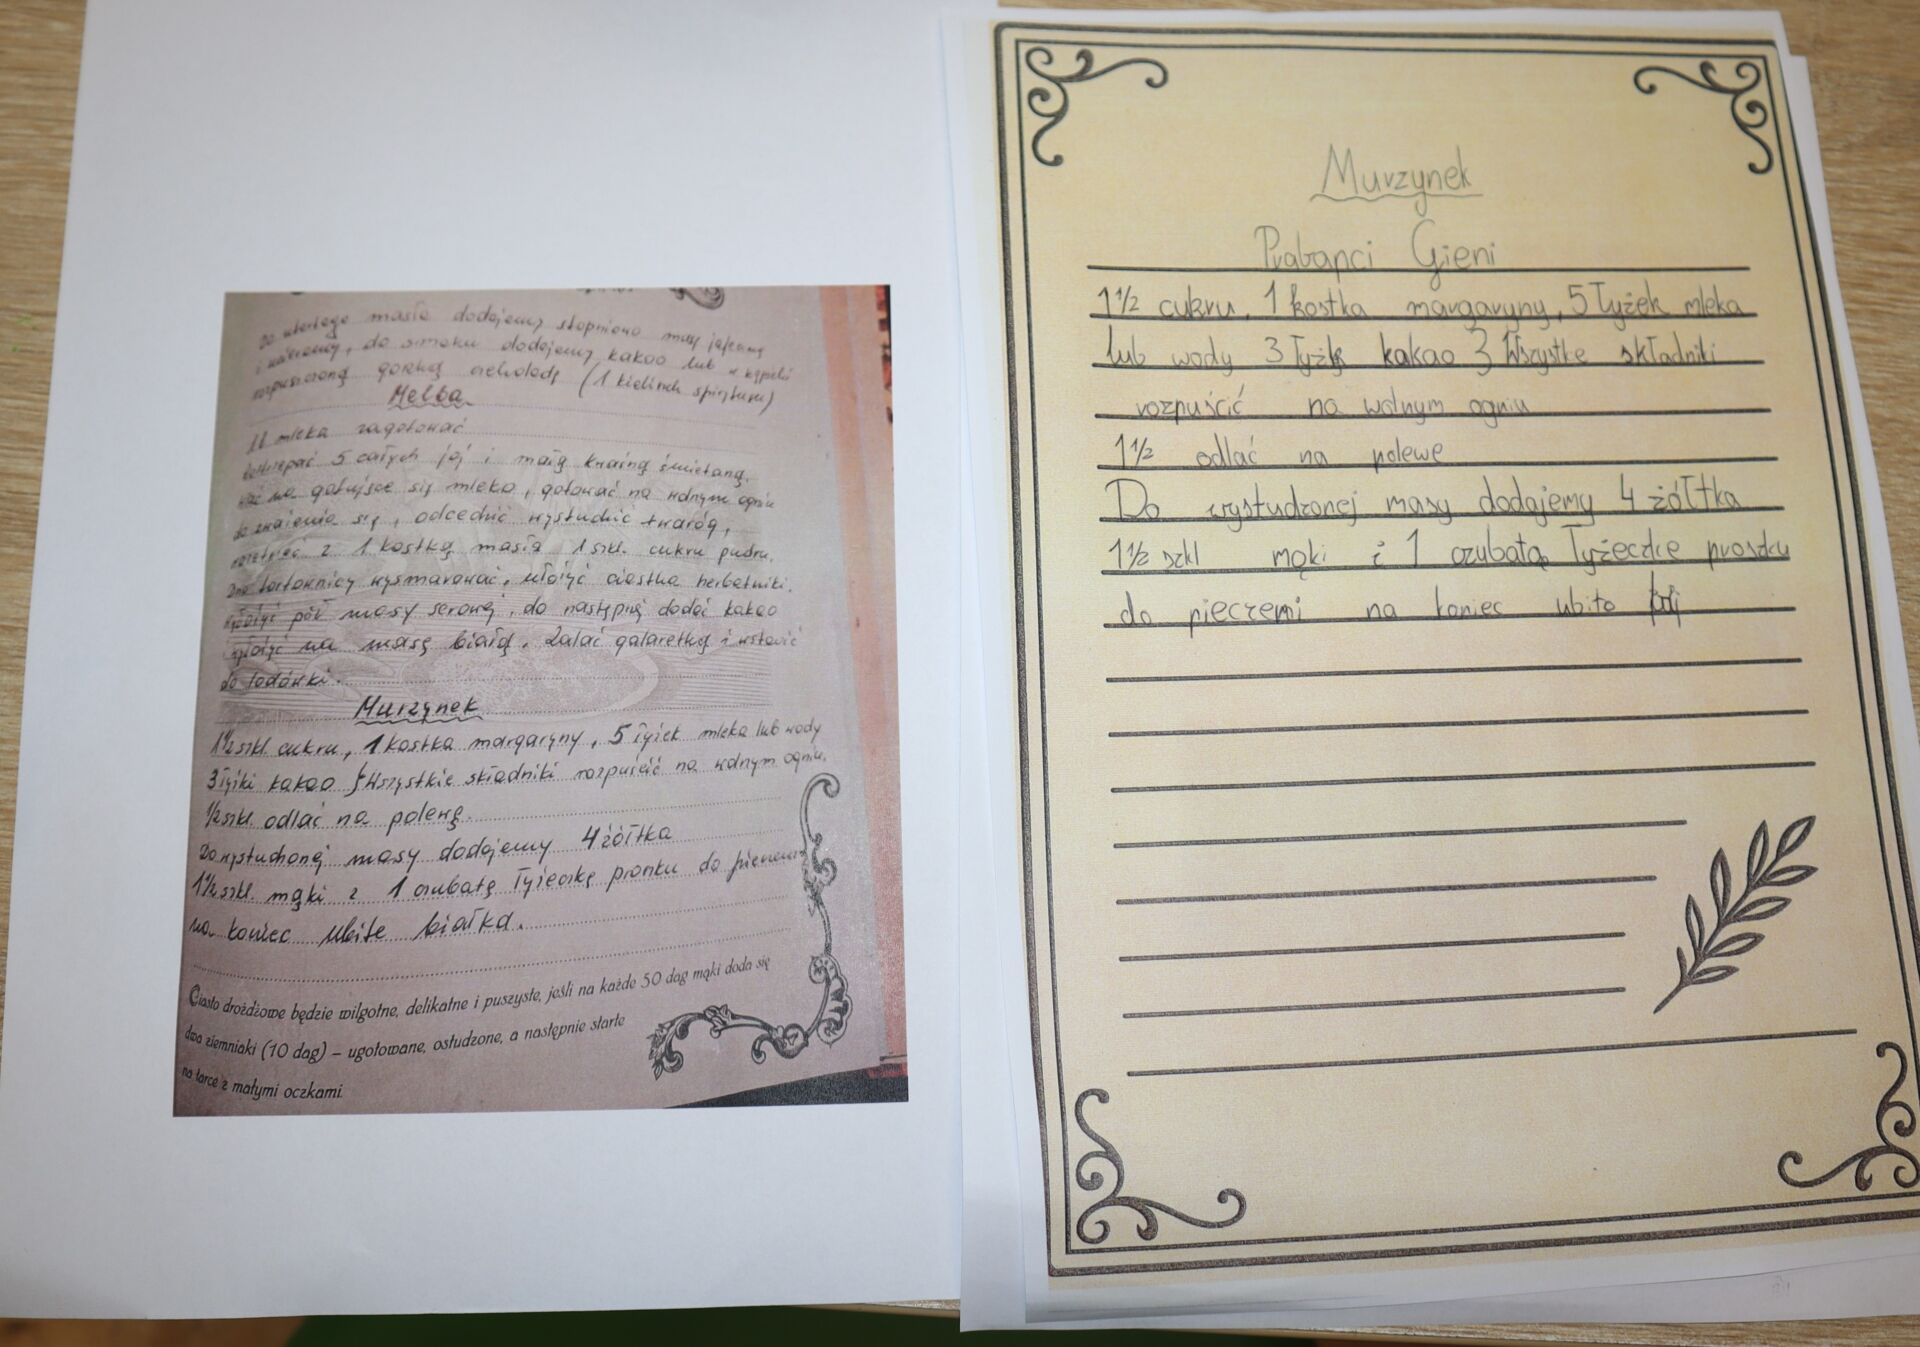 Do utartego masła dodajemy stopniowo masę jajeczną
i ucieramy, do smaku dodajemy kakao lub w kąpieli
rozpuszczoną gorzką czekoladę (1 kielinek spirytusu)
Melba
1l mleka zagotować
5 całych jaj i małą kwaśną śmietaną.
wlać na gotujące się mleko, gotować na wolnym ogniu
do zwarzenia się, odcedzić wystudzić twaróg,
rozetrzeć z 1 kostką masła 1 szkl. cukru pudru.
Dno tortownicy wysmarować, ułożyć ciastka herbatniki.
wyłożyć pół masy serowej, do następnej dodać kakao
wyłożyć na masę białą. Zalać galaretką i wstawić
do lodówki.
Murzynek
1½ szkl. cukru, 1 kostka margaryny, 5 łyżek mleka lub wody
3 łyżki kakao } Wszystkie składniki rozpuścić na wolnym ogniu.
½ szkl. odlać na polewę.
Do wystudzonej masy dodajemy 4 żółtka
1½ szkl. mąki z 1 czubatą łyżeczką proszku do pieczenia
na koniec ubite białka.
Ciasto drożdżowe będzie wilgotne, delikatne i puszyste, jeśli na każde 50 dag mąki doda się
dwa ziemniaki (10 dag) – ugotowane, ostudzone, a następnie starte
na tarce z małymi oczkami.
Murzynek
Prabapci Gieni
1½ cukru, 1 kostka margaryny, 5 łyżek mleka
lub wody 3 łyżk kakao } Wszystke składniki
rozpuścić na wolnym ogniu
1½ odlać na polewe
Do wystudzonej masy dodajemy 4 żółtka
1½ szkl mąki i 1 czubatą łyżeczke proszku
do pieczemi na koniec ubito